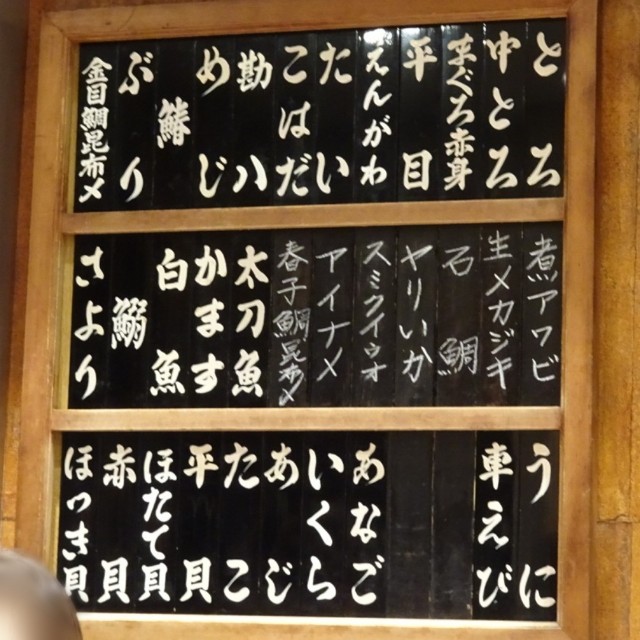 とろ
中とろ
まぐろ赤身
平目
えんがわ
たい
こはだ
勘八
めじ
鰆
ぶり
金目鯛昆布〆
煮アワビ
生メカジキ
石鯛
ヤリいか
スミクイウオ
アイナメ
春子鯛昆布〆
太刀魚
かます
白魚
鰯
さより
うに
車えび
あなご
いくら
あじ
たこ
平貝
ほたて貝
赤貝
ほっき貝